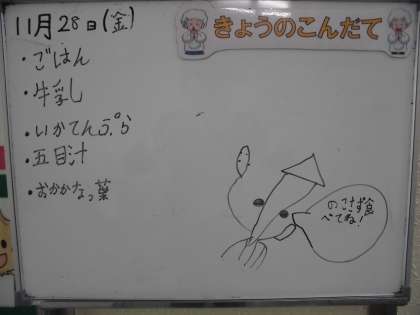 11月28日(金)
きょうのこんだて
・ごはん
・牛乳
・いかてんぷら
・五目汁
・おかかなっ葉
のこさず食
べてね!